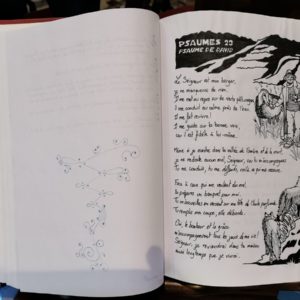 PSAUMES 23
PSAUME DE DAVID
Le Seigneur est mon berger,
je ne manquerai de rien.
Il me met au repos sur
Il me conduit au calme près de l'eau.
Il me fait revivre !
Il me guide sur la bonne voie,
car il est fidèle à lui-même.
Même si je marche dans la vallée de l'ombre et de la mort,
je ne redoute aucun mal, Seigneur, car tu m'accompagnes.
Tu me conduis, tu me défends, voilà ce qui me rassure.
Face à ceux qui me veulent du mal,
tu prépares un banquet pour moi.
Tu m'accueilles en versant sur ma tête de l'huile parfumée.
Tu remplis ma coupe, elle déborde.
Oui, le bonheur et la grâce
m'accompagneront tous les jours de ma vie !
Seigneur, je reviendrai dans ta maison
aussi longtemps que je vivrai.